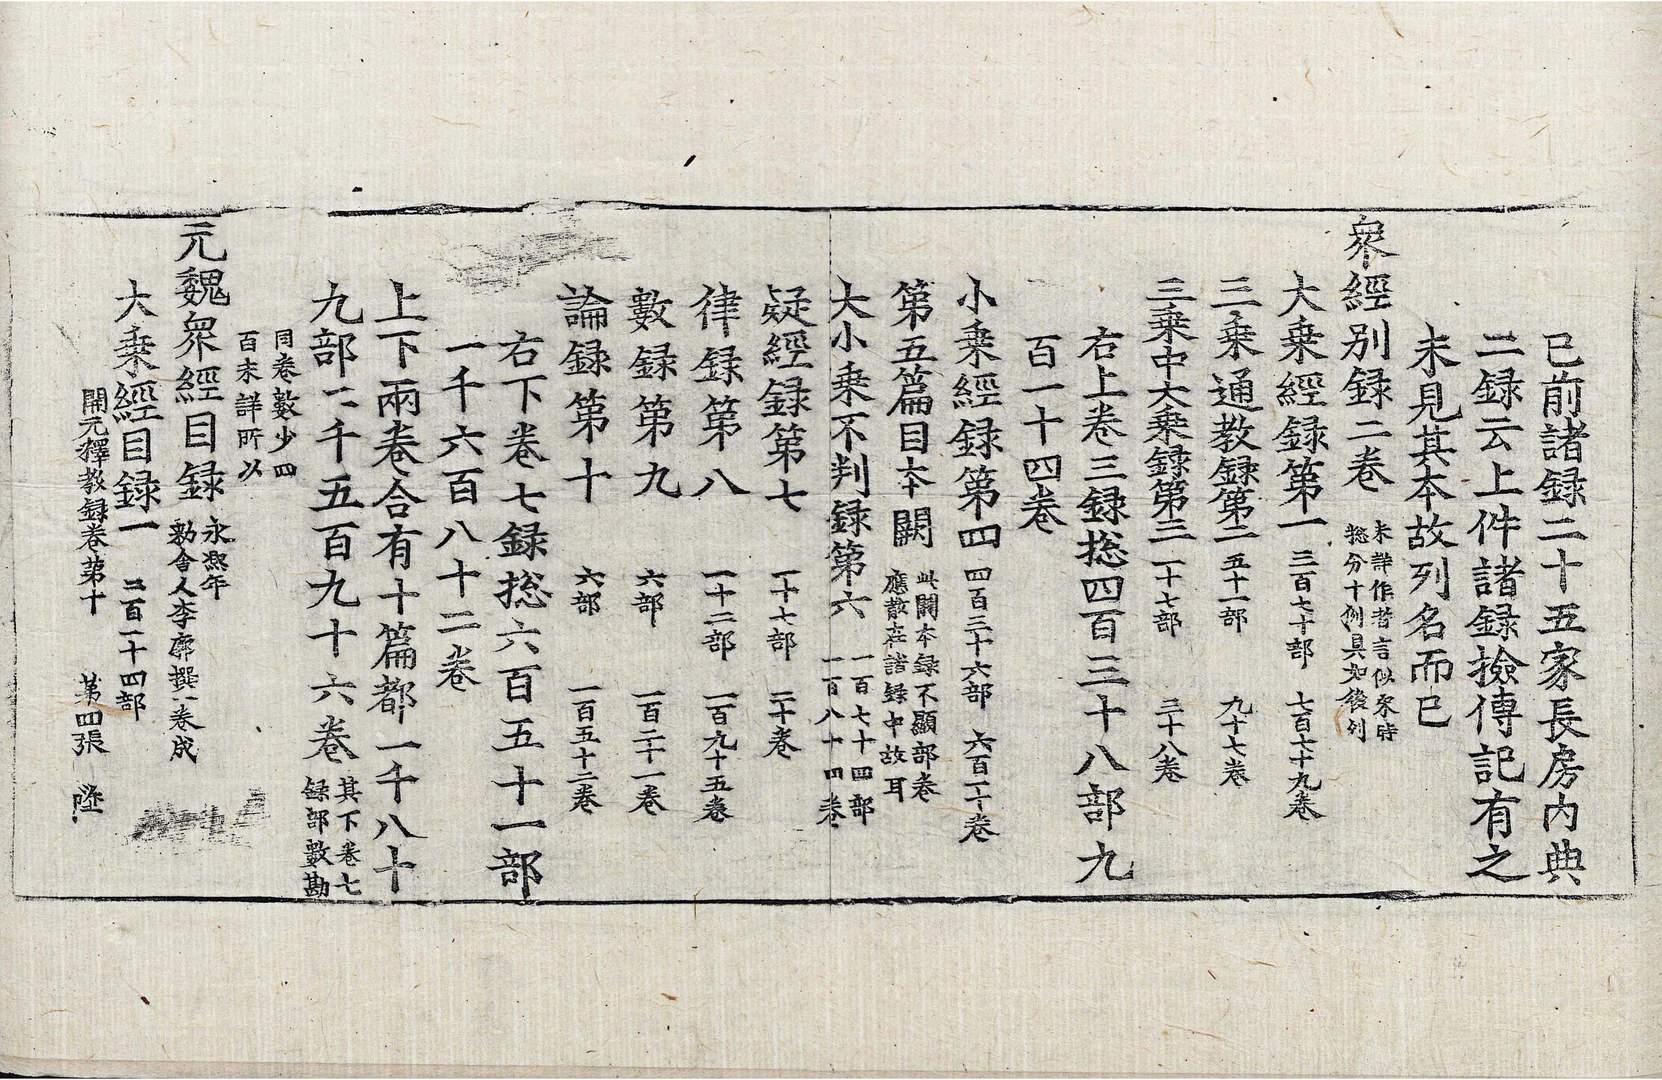 已前諸録二十五家長房内典
二録云上件諸録撿傳記有之
未見其本故列名而已
衆經别録二卷 未詳作者言似宋時 捴分十例具如後列
大乗經録第一 三百七十部 七百七十九卷
三乗通教録第二 五十一部 九十七卷
三乗中大乗録第三 一十七部 三十八卷
右上卷三録捴四百三十八部九
百一十四卷
小乗經録第四 四百三十六部 六百一十卷
第五篇目本闕 此闕本録不顯部卷 應散在諸録中故耳
大小乗不判録第六 一百七十四部 一百八十四卷
疑經録第七 一十七部 二十卷
律録第八 一十二部 一百九十五卷
數録第九 六部 一百二十一卷
論録第十 六部 一百五十二卷
右下卷七録捴六百五十一部
一千六百八十二卷
上下兩卷合有十篇都一千八十
九部二千五百九十六卷 其下卷七 録部數勘
同卷數少四 百未詳所以
元魏衆經目録 永熙年 勑舍人李廓撰一卷成
大乗經目録一 二百一十四部
開元釋教録卷第十 第四張